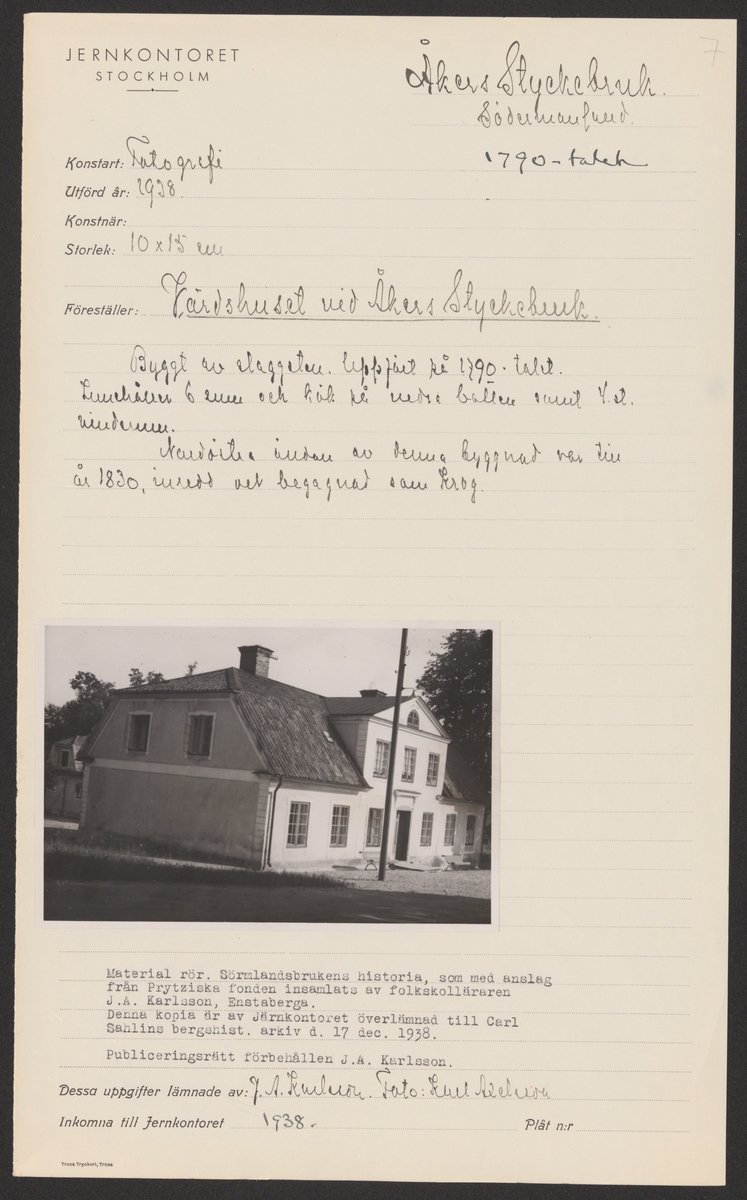 7
JERNKONTORET
STOCKHOLM
Åkers Styckebruk.
Södermanland.
1790-talet
Konstart: Fotografi
Utförd år: 1938.
Konstnär:
Storlek: 10 x 15 cm
Föreställer: Värdshuset vid Åkers Styckebruk.
Byggt av slaggsten. Uppfört på 1790-talet.
6 rum och kök på nedre botten samt 4 st.
vindsrum.
Nordöstra ändan av denna byggnad var till
år 1830, inredd och begagnad som Krog.
Material rör. Sörmlandsbrukens historia, som med anslag
från Prytziska fonden insamlats av folkskolläraren
J.A. Karlsson, Enstaberga.
Denna kopia är av Järnkontoret överlämnad till Carl
Sahlins bergshist. arkiv d. 17 dec. 1938.
Publiceringsrätt förbehållen J.A. Karlsson.
Dessa uppgifter lämnade av: J. A. Karlsson. Foto: Karl Axelsson
Inkomna till Jernkontoret 1938.
Plåt n:r
Trosa Tryckeri, Trosa